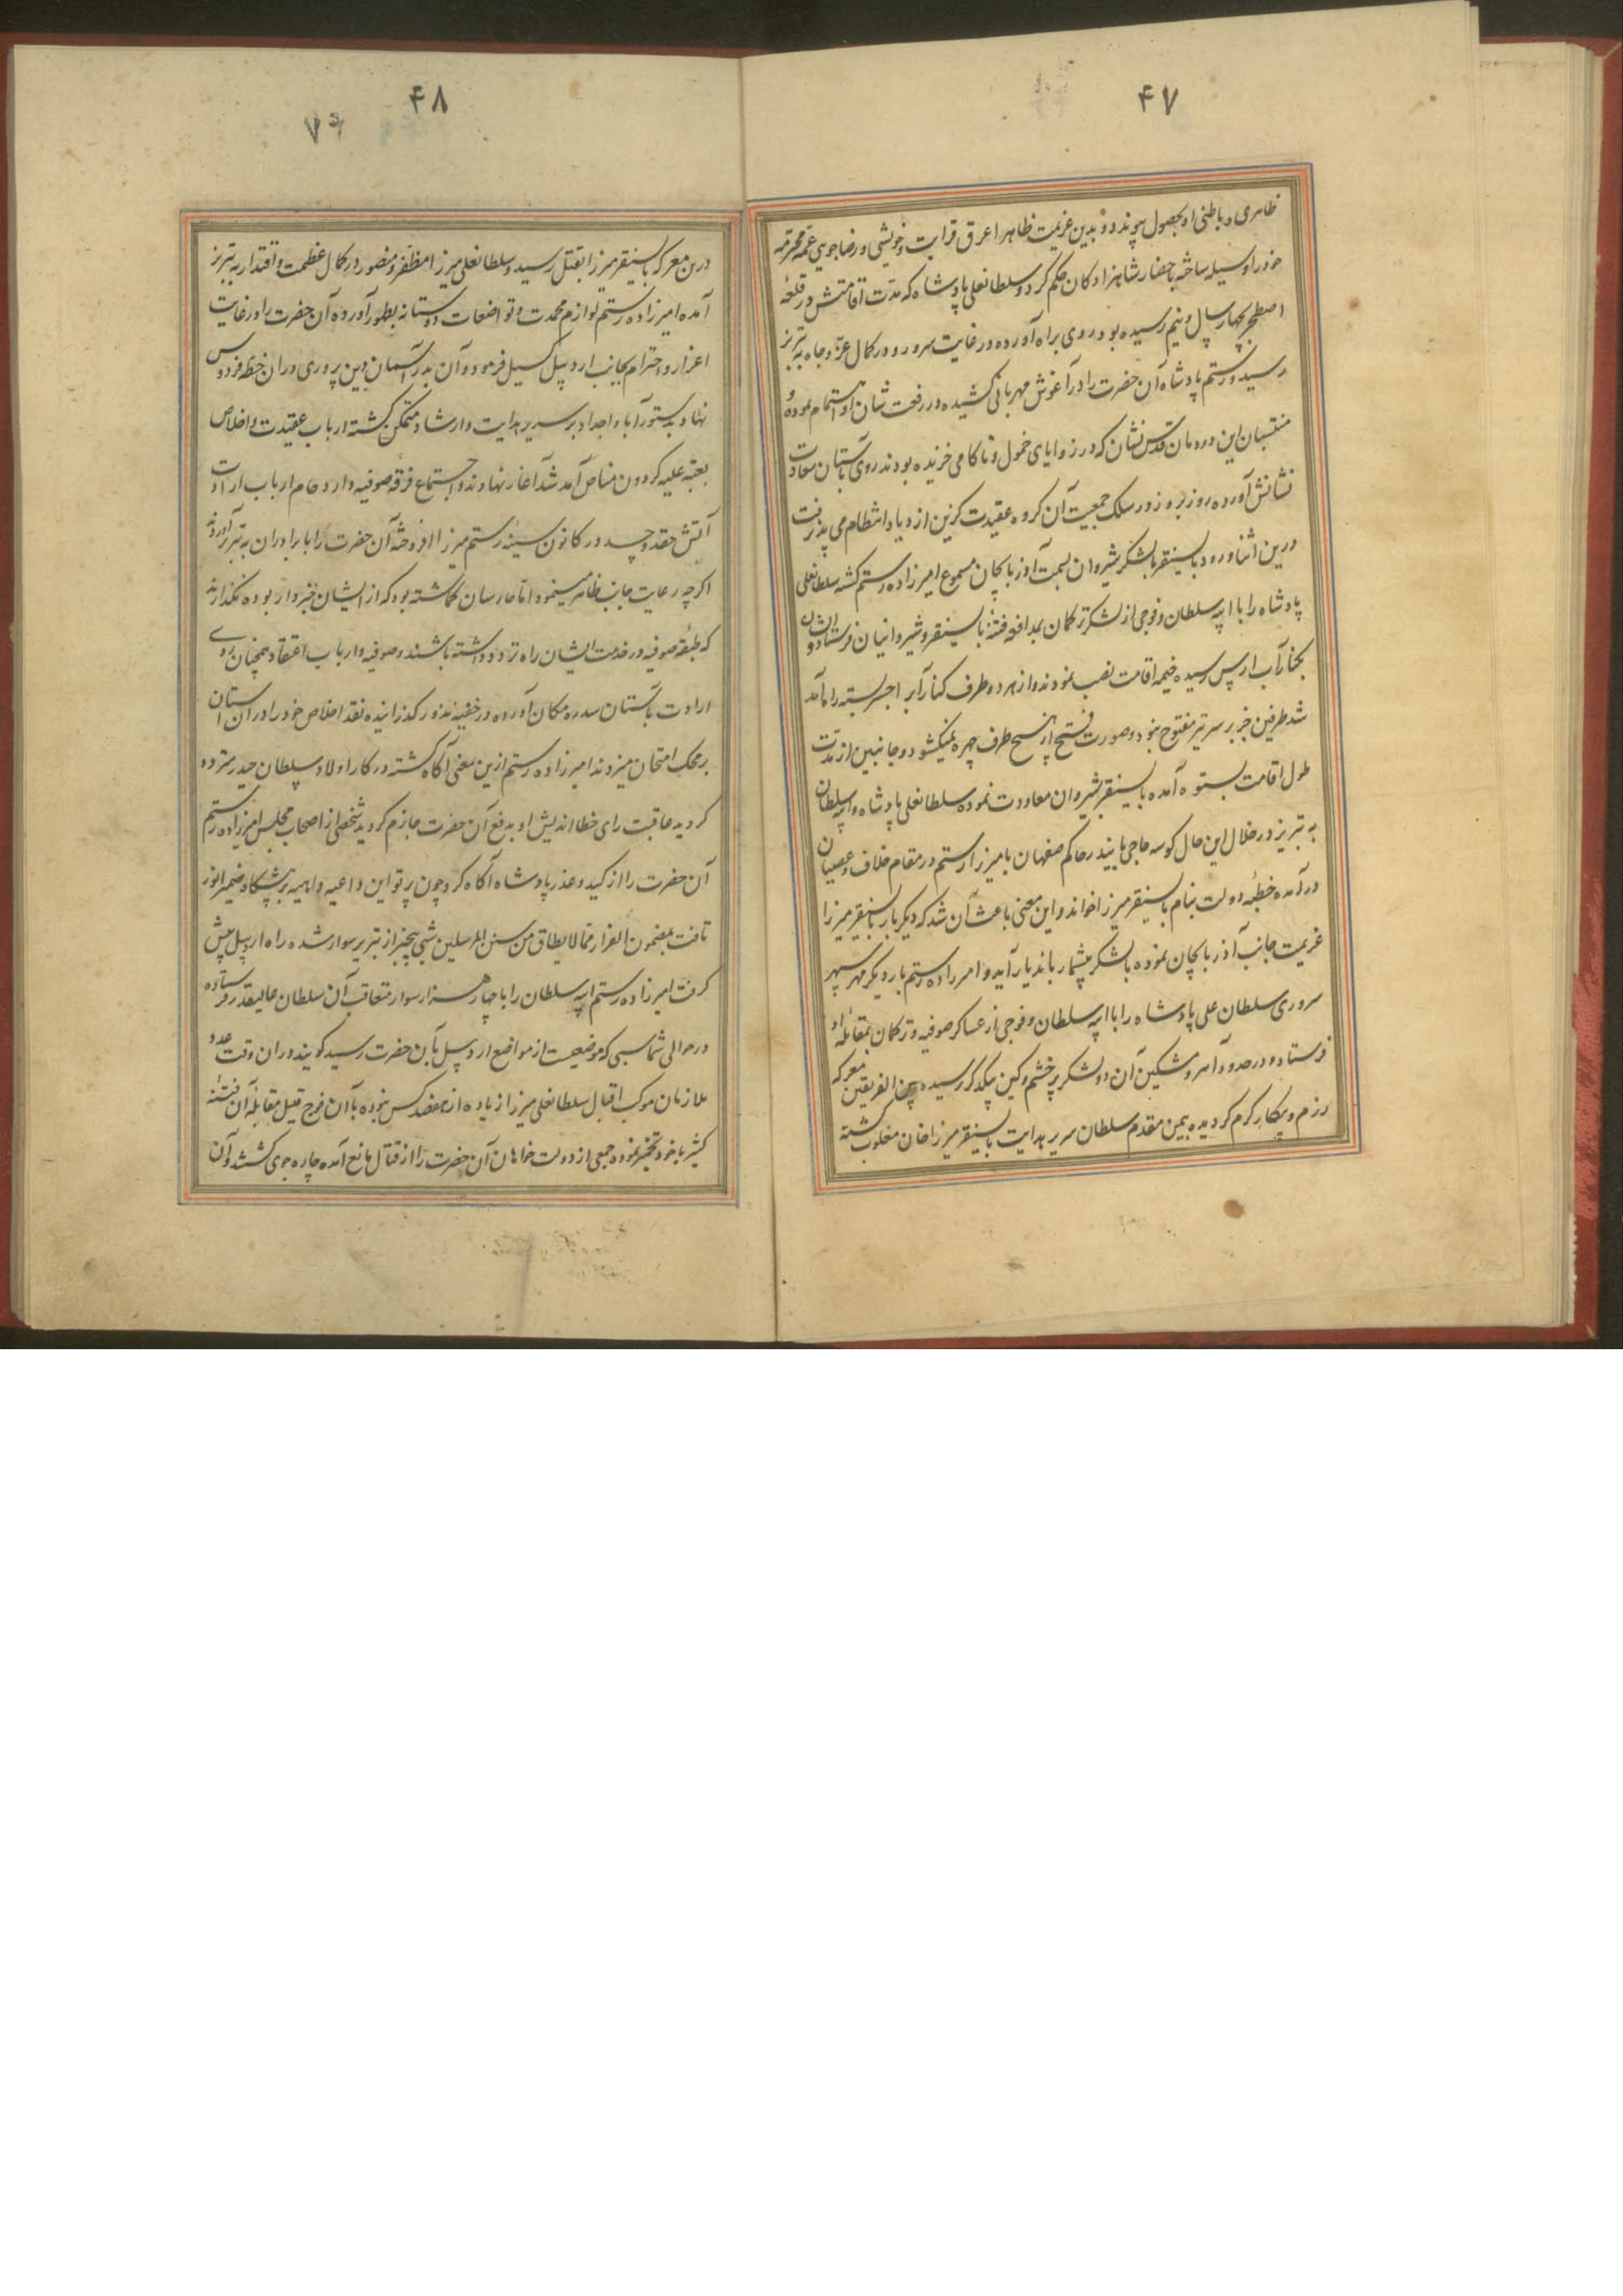 ۴۷
ظاهری و باطنی او بحصول پیوندد و بدین عزیمت ظاهرا عرق قرابت و خویشی و رضاجویی عمه محترمه
خود را وسیله ساخته باحضار شاهزادکان حکم کرد و سلطانعلی پادشاه که مدت اقامتش در قلعه
اصطخر بچهار سال و نیم رسیده بود روی براه آورده در غایت سرور و در کمال عز و جاه به تبریز
رسید و رستم پادشاه آن حضرت را در آغوش مهربانی کشیده در رفعت شان او اهتمام نموده و
منتسبان این دودمان قدس نشان که در زوایای خمول و ناکامی خزیده بودند روی بآستان سعادت
نشانش آورده روز بروز در سلک جمعیت آن کروه عقیدت کزین ازدیاد انتظام می پذیرفت
درین اثنا ورود بایسنقر با لشکر شیروان بسمت آذربایجان مسموع امیرزاده رستم کشته سلطانعلی
پادشاه را با ایبه سلطان و فوجی از لشکر ترکمان بمدافعه فتنه بایسنقر و شیروانیان فرستاد و ایشان
بکنار آب ارس رسیده خیمه اقامت نصب نمودند و از هر دو طرف کنار آب را جسر بسته راه آمد
شد طرفین جز بر سر تیر مفتوح نبود و صورت فتح از هیچ طرف چهره نمیکشود و جانبین از مدت
طول اقامت بستوه آمده بایسنقر بشیروان معاودت نموده سلطانعلی پادشاه و ایبه سلطان
به تبریز در خلال این حال کوسه حاجی بایندر حاکم صفهان با میرزا رستم در مقام خلاف و عصیان
درآمده خطبه دولت بنام بایسنقر میرزا خواند و این معنی باعث آن شد که دیکر بار بایسنقر میرزا
عزیمت جانب آذربایجان نموده با لشکر بیشمار باندیار آید و امیرزاده رستم بار دیکر مهر سپهر
سروری سلطان علی پادشاه را با ایبه سلطان و فوجی از عساکر صوفیه و ترکمان بمقابله او
فرستاد و در حدود آهر و مشکین آن دو لشکر پر خشم و کین بیکدکر رسیده بین الفریقین معرکه
رزم و پیکار کرم کردیده بیمن مقدم سلطان سریر هدایت بایسنقر میرزا خان مغلوب کشته
۴۸
درین معرکه بایسنقر میرزا بقتل رسید و سلطانعلی میرزا مظفر و منصور در کمال عظمت و اقتدار به تبریز
آمده امیرزاده رستم لوازم محمدت و تواضعات دوستانه بظهور آورده آن حضرت را در غایت
اعزاز و احترام بجانب اردبیل کسیل فرمود و آن بدر آسمان دین پروری در ان خطه فردوس
نهاد بدستور آبا و اجداد بر سریر هدایت و ارشاد متمکن کشته ارباب عقیدت و اخلاص
بعتبه علیه کردون مناص آمد شد آغاز نهادند و اجتماع فرقه صوفیه و ازدحام ارباب ارادت
آتش حقد و حسد در کانون سینه رستم میرزا افروخته آن حضرت را با برادران به تبریز آوردند
اکرچه رعایت جانب ظاهر مینمود اما حارسان کماشته بود که از ایشان خبردار بوده نکذارند
که طبقه صوفیه در خدمت ایشان راه تردد داشته باشند و صوفیه و ارباب اعتقاد همچنان روی
ارادت بآستان سدره مکان آورده در خفیه نذور کذرانیده نقد اخلاص خود را در آن آستان
بر محک امتحان میزدند امیرزاده رستم ازین معنی آکاه کشته در کار اولاد سلطان حیدر متردد
کردید عاقبت رای خطا اندیش او بدفع آن حضرت جازم کردید شخصی از اصحاب مجلس امیرزاده رستم
آن حضرت را از کید و غدر پادشاه آکاه کرد چون پرتو این داعیه واهمیه بر پیشکاه ضمیر انور
تافت بمضمون الفرار مما لا یطاق من سنن المرسلین شبی بیخبر از تبریز سوار شده راه اردبیل پیش
کرفت امیرزاده رستم ایبه سلطان را با چهار هزار سوار متعاقب آن سلطان عالیقدر فرستاده
در حوالی شماسبی که موضعیست از مواضع اردبیل بآن حضرت رسید کویند در ان وقت عدد
ملازمان موکب اقبال سلطانعلی میرزا زیاده از هفصد کس نبوده با آن فوج قلیل مقابله آن فتنه
کثیر با خود تخمیر نموده جمعی از دولت خواهان آن حضرت را از قتال مانع آمده چاره جوی کشتند و آن